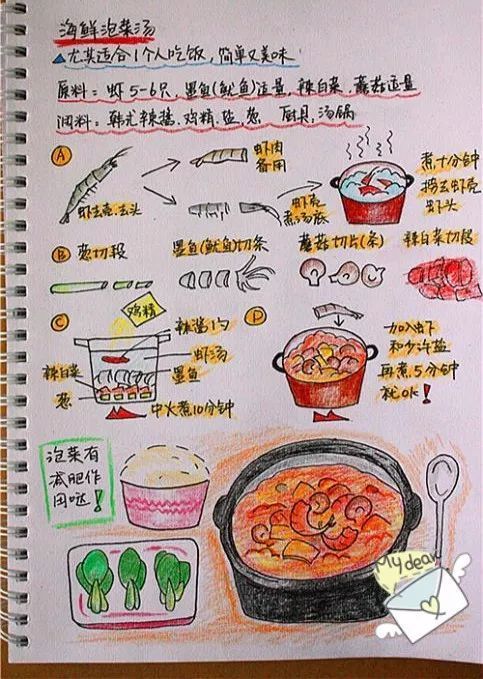 海鲜泡菜汤
▲尤其适合1个人吃饭,简单又美味
原料:虾5-6只.墨鱼(鱿鱼)适量.辣白菜.蘑菇适量
调料:韩式辣酱.鸡精.盐,葱 厨具,汤锅
A
虾去壳.去头
虾肉
备用
虾壳
煮汤底
煮十分钟
捞去虾壳
虾头
B 葱切段
墨鱼(鱿鱼)切条
蘑菇切片(条)
辣白菜切段
C
鸡精
辣酱1勺
虾汤
墨鱼
辣白菜
葱
中火煮10分钟
D
加入虾
和少许盐
再煮.5分钟
就OK!
泡菜有
减肥作
用哒!
My dear